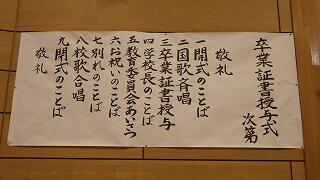 卒業証書授与式
次第
敬礼
一開式のことば
二国歌斉唱
三卒業証書授与
四学校長のことば
五教育委員会あいさつ
六お祝いのことば
七別れのことば
八校歌合唱
九閉式のことば
敬礼